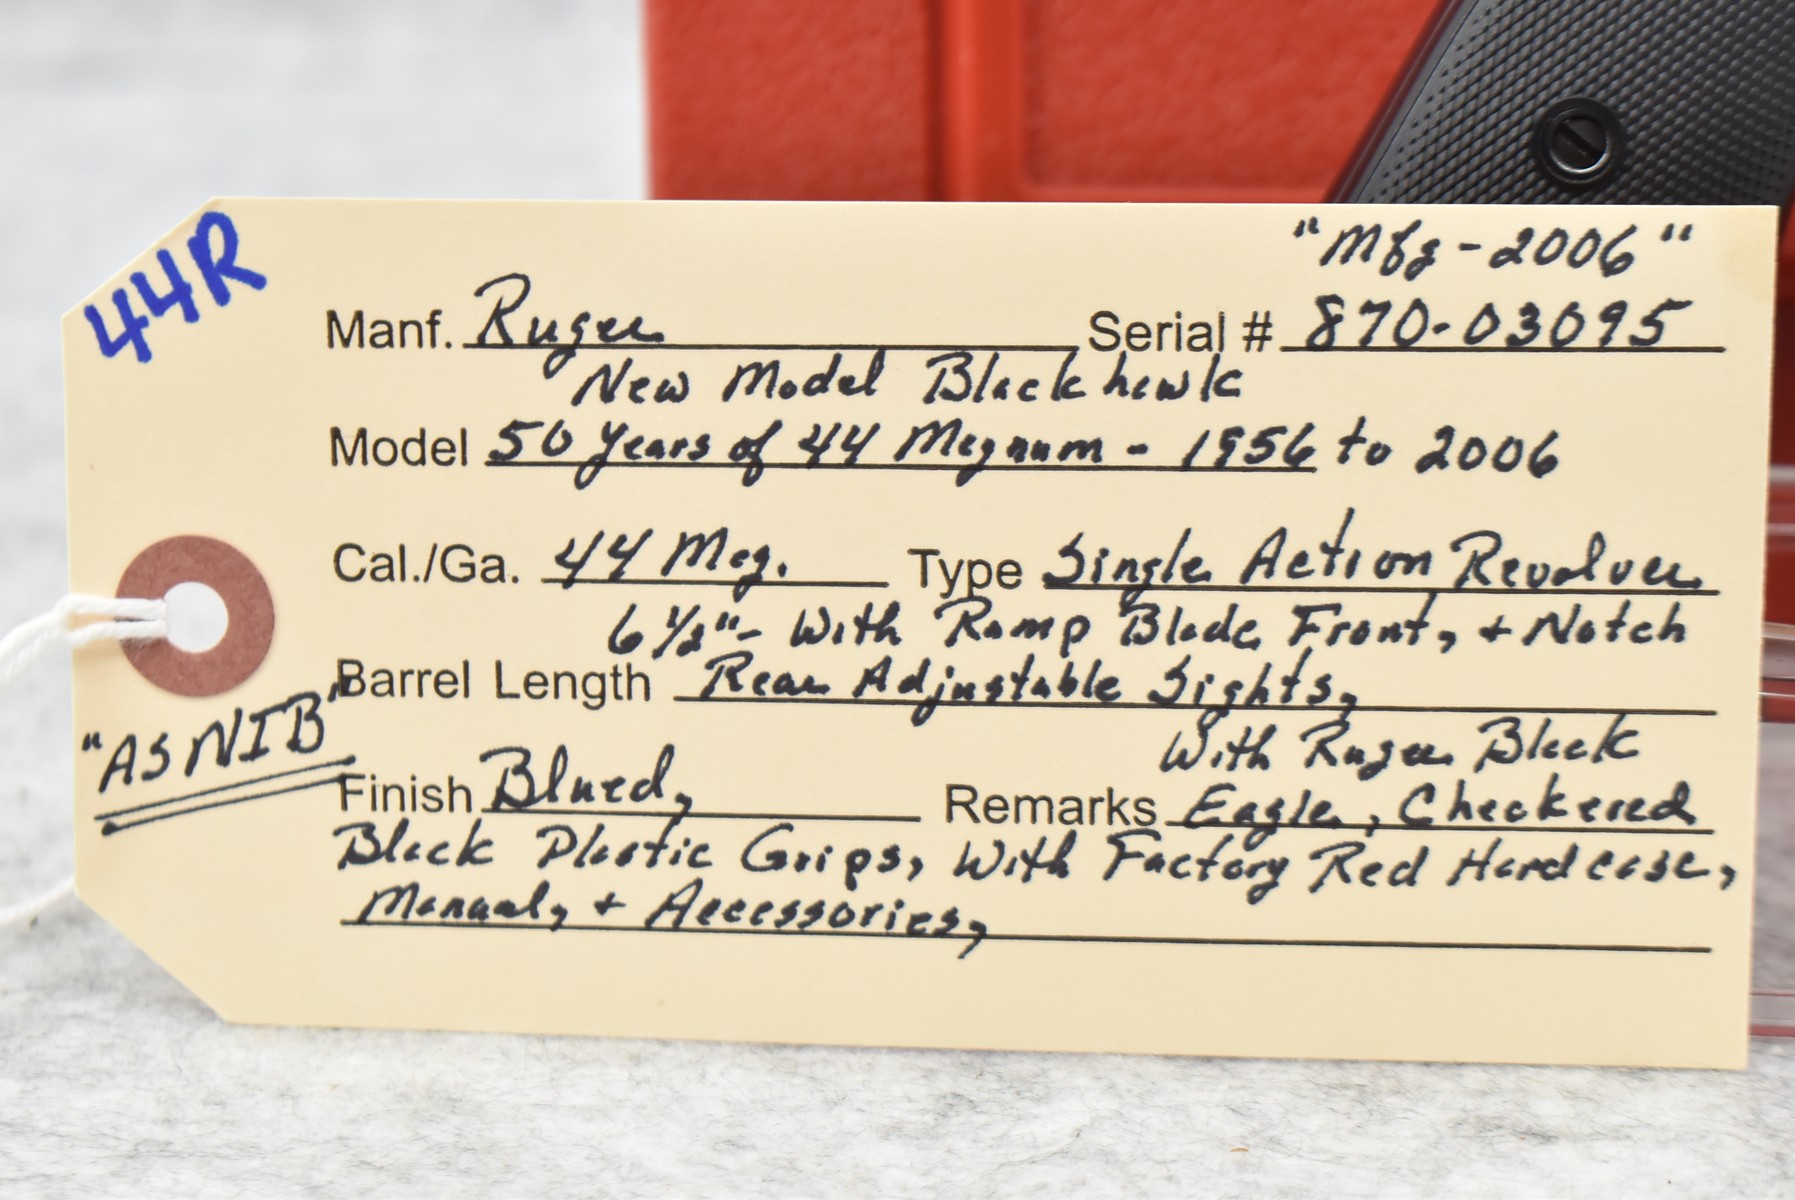 44R
"Mfg-2006"
Manf. Ruger Serial # 870-03095
New Model Blackhawk
Model 50 Years of 44 Magnum - 1956 to 2006
Cal./Ga. 44 Mag. Type Single Action Revolver
6 1/2"- With Ramp Blade Front, + Notch
Barrel Length Rear Adjustable Sights,
"AS NIB"
With Ruger Black
Finish Blued, Remarks Eagle, Checkered
Black Plastic Grips, With Factory Red Hardcase,
Manual, + Accessories,